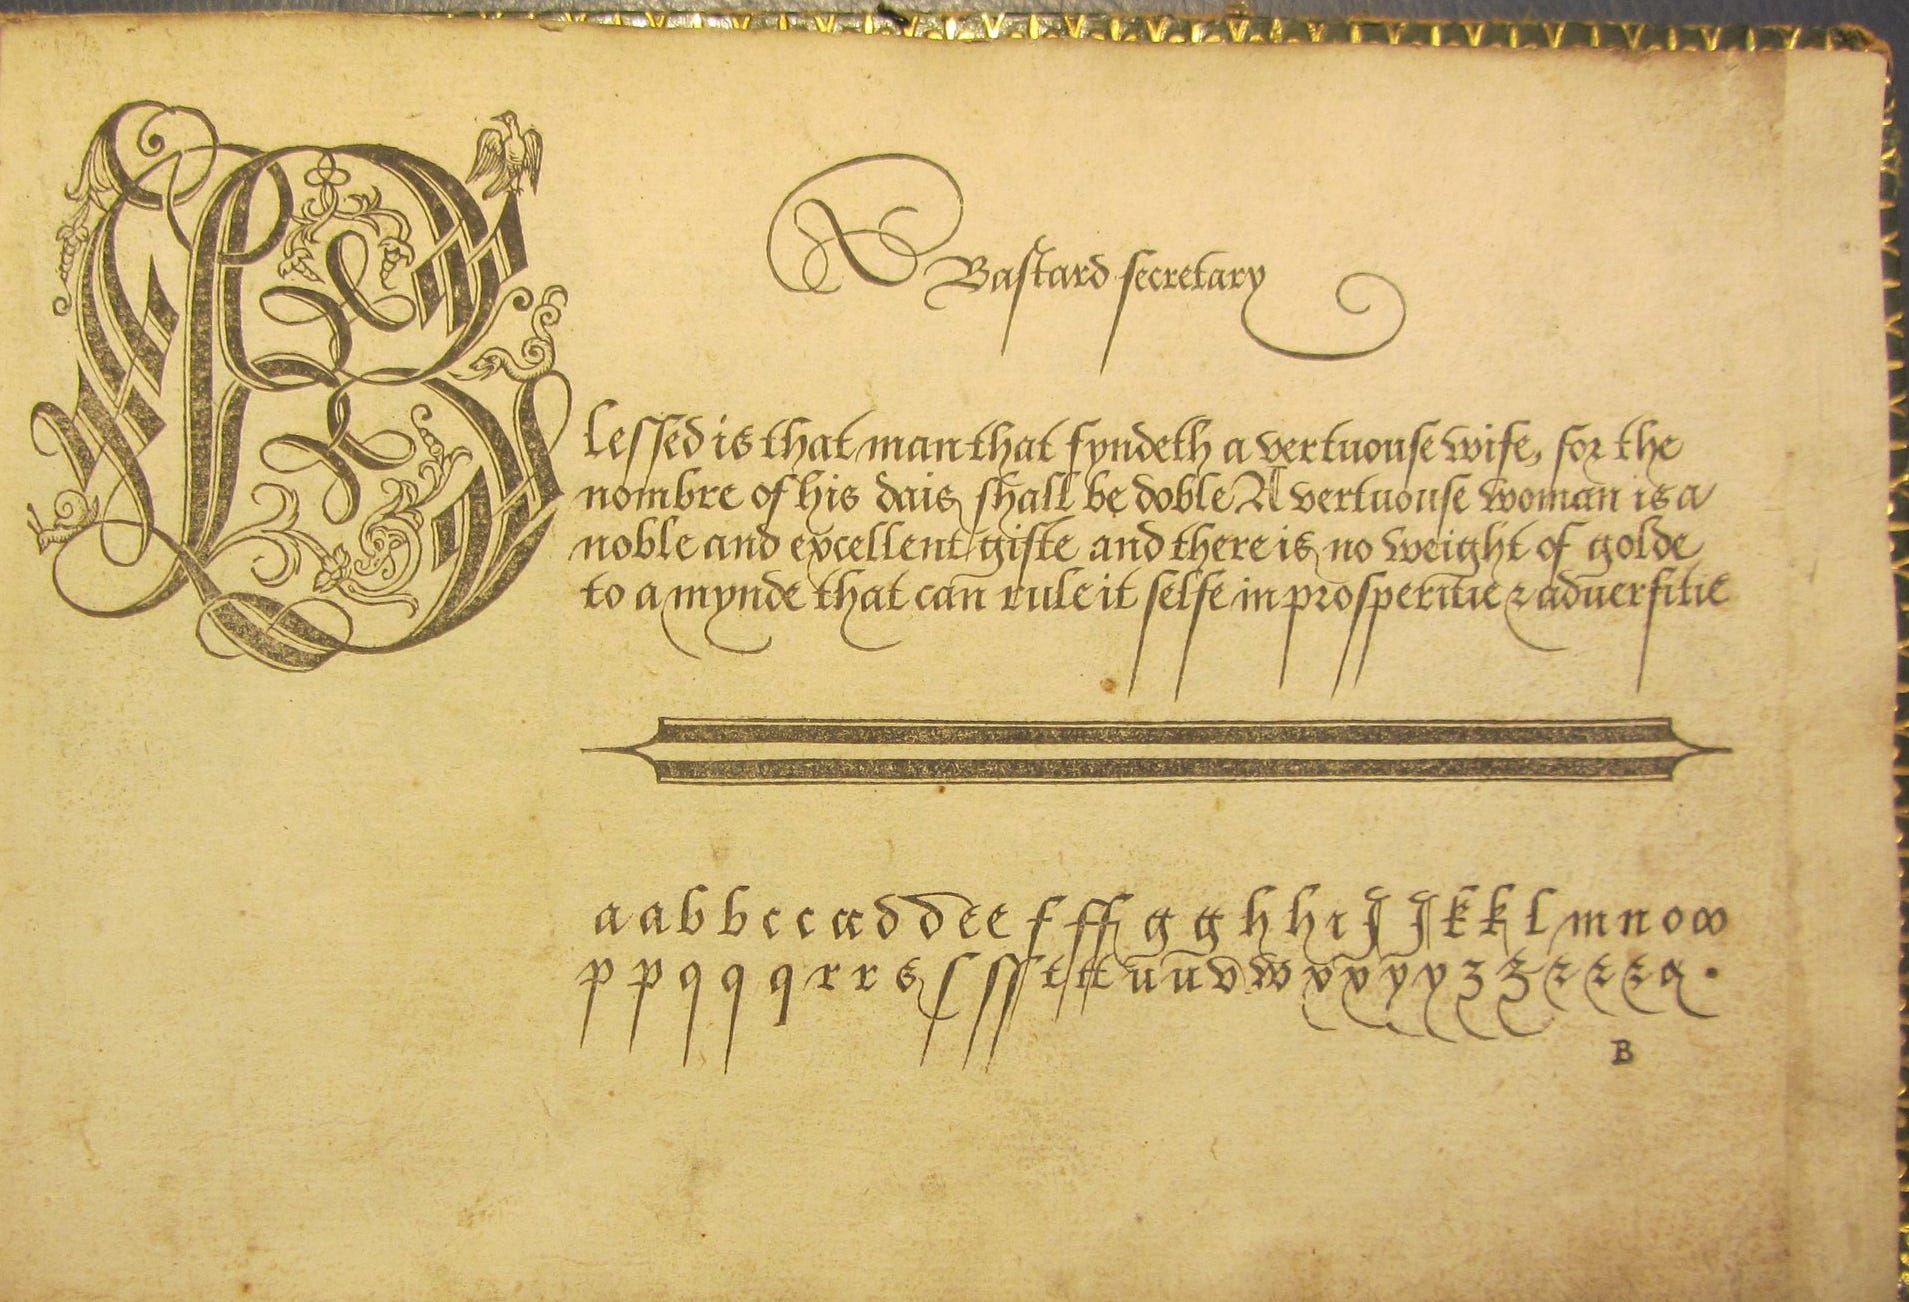 Bastard secretary
Blessed is that man that fyndeth a vertuouse wife, for the
nombre of his dais shall be doble A vertuouse woman is a
noble and excellent gifte and there is no weight of golde
to a mynde that can rule it selfe in prosperitie & aduersitie
a a b b c c cc d d e e f ff g g h h i J J k k l m n o w
p p q q q r r s ſ ſſ t tt u u v w x x y y z z & & & & .
B